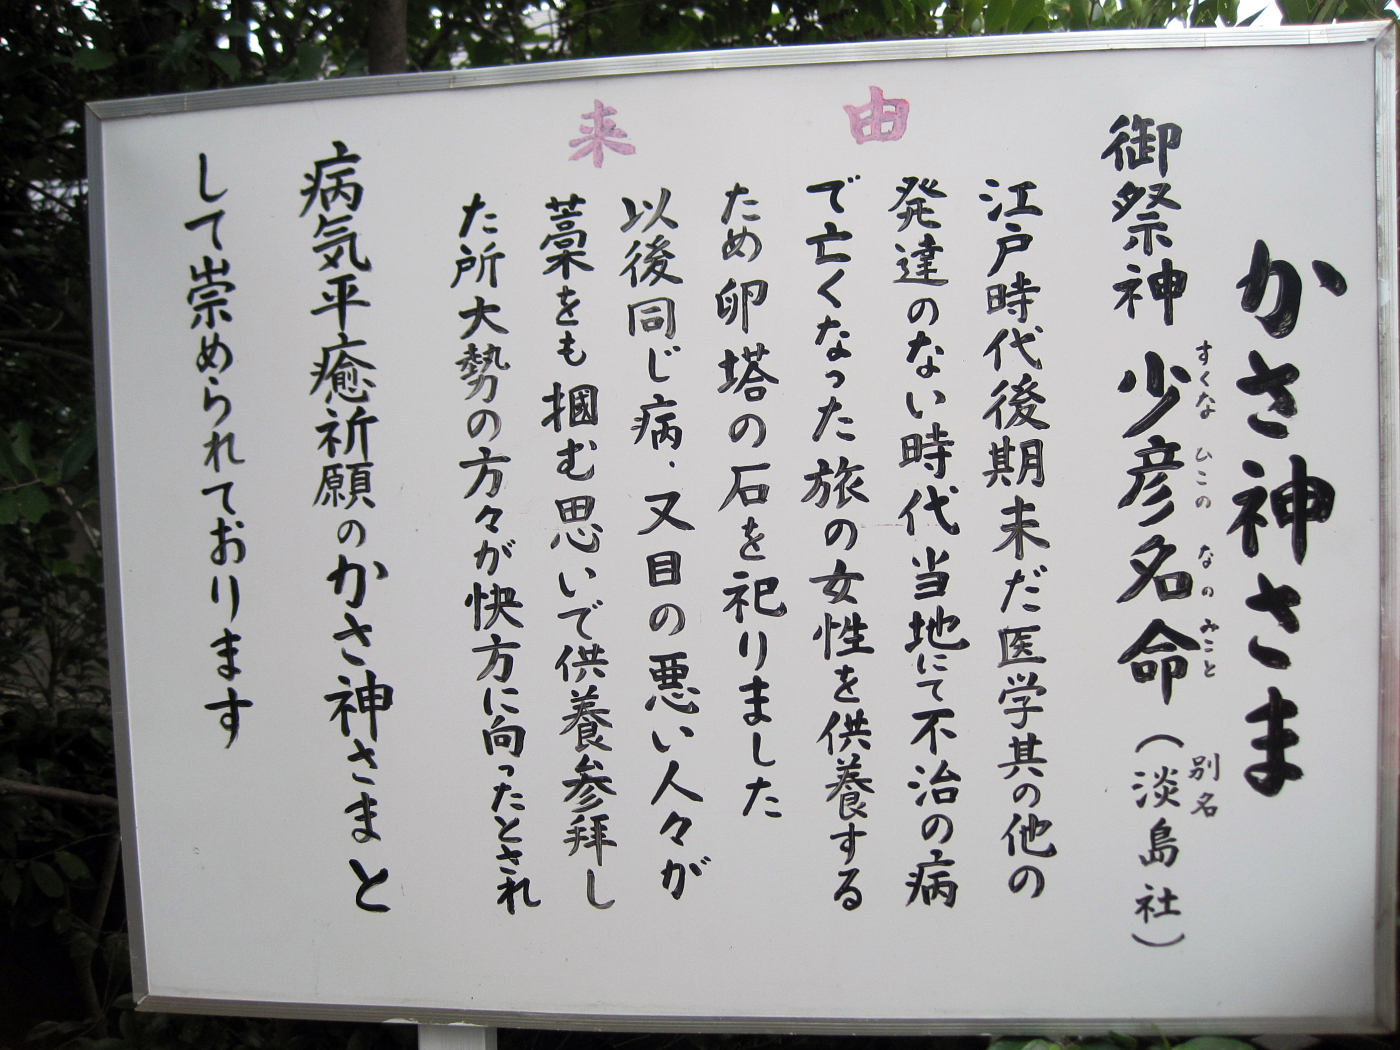 かさ神さま
御祭神 少彦名命(淡島社)
すくな ひこの なの みこと
別名
由来
江戸時代後期末だ医学其の他の
発達のない時代当地にて不治の病
で亡くなった旅の女性を供養する
ため卵塔の石を祀りました
以後同じ病、又目の悪い人々が
藁をも掴む思いで供養参拝し
た所大勢の方々が快方に向ったとされ
病気平癒祈願のかさ神さまと
して崇められております